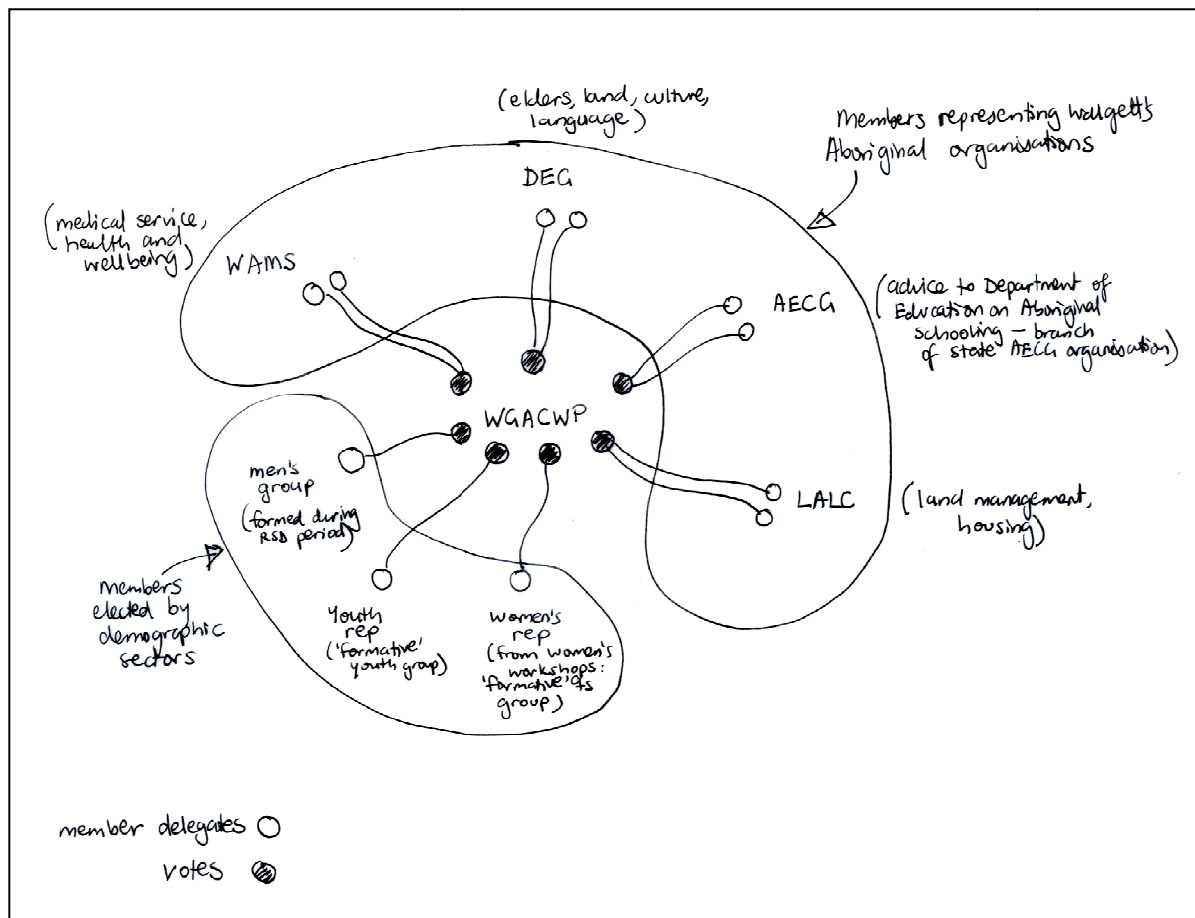 (elders, land, culture,
language)
Members representing Walgett's
Aboriginal organisations
DEG
(medical service,
health and
wellbeing)
WAMS
AECG
(advice to Department of
Education on Aboriginal
schooling – branch
of state AECG organisation)
WGACWP
men's
group
(formed during
RSD period)
LALC
(land management,
housing)
members
elected by
demographic
sectors
Youth
rep
('formative'
youth group)
women's
rep
(from women's
workshops:
'formative'
group)
member delegates
votes